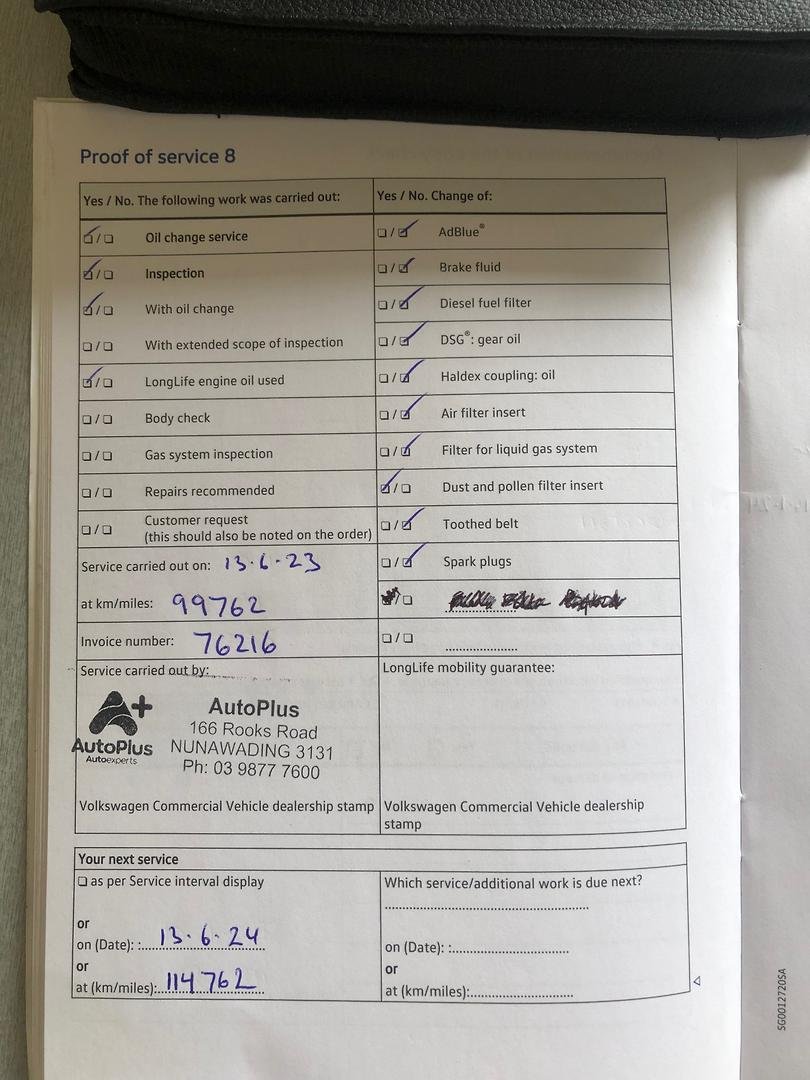 Proof of service 8
Yes / No. The following work was carried out:
Oil change service
Inspection
With oil change
With extended scope of inspection
LongLife engine oil used
Body check
Gas system inspection
Repairs recommended
Customer request
(this should also be noted on the order)
Service carried out on: 13.6.23
at km/miles: 99762
Invoice number: 76216
Service carried out by:
A+
AutoPlus
Autoexperts
AutoPlus
166 Rooks Road
NUNAWADING 3131
Ph: 03 9877 7600
Volkswagen Commercial Vehicle dealership stamp
Yes / No. Change of:
AdBlue®
Brake fluid
Diesel fuel filter
DSG®: gear oil
Haldex coupling: oil
Air filter insert
Filter for liquid gas system
Dust and pollen filter insert
Toothed belt
Spark plugs
LongLife mobility guarantee:
Volkswagen Commercial Vehicle dealership
stamp
Your next service
as per Service interval display
or
on (Date): :13.6.24
or
at (km/miles):114762
Which service/additional work is due next?
on (Date): :
or
at (km/miles):
SG0012720SA